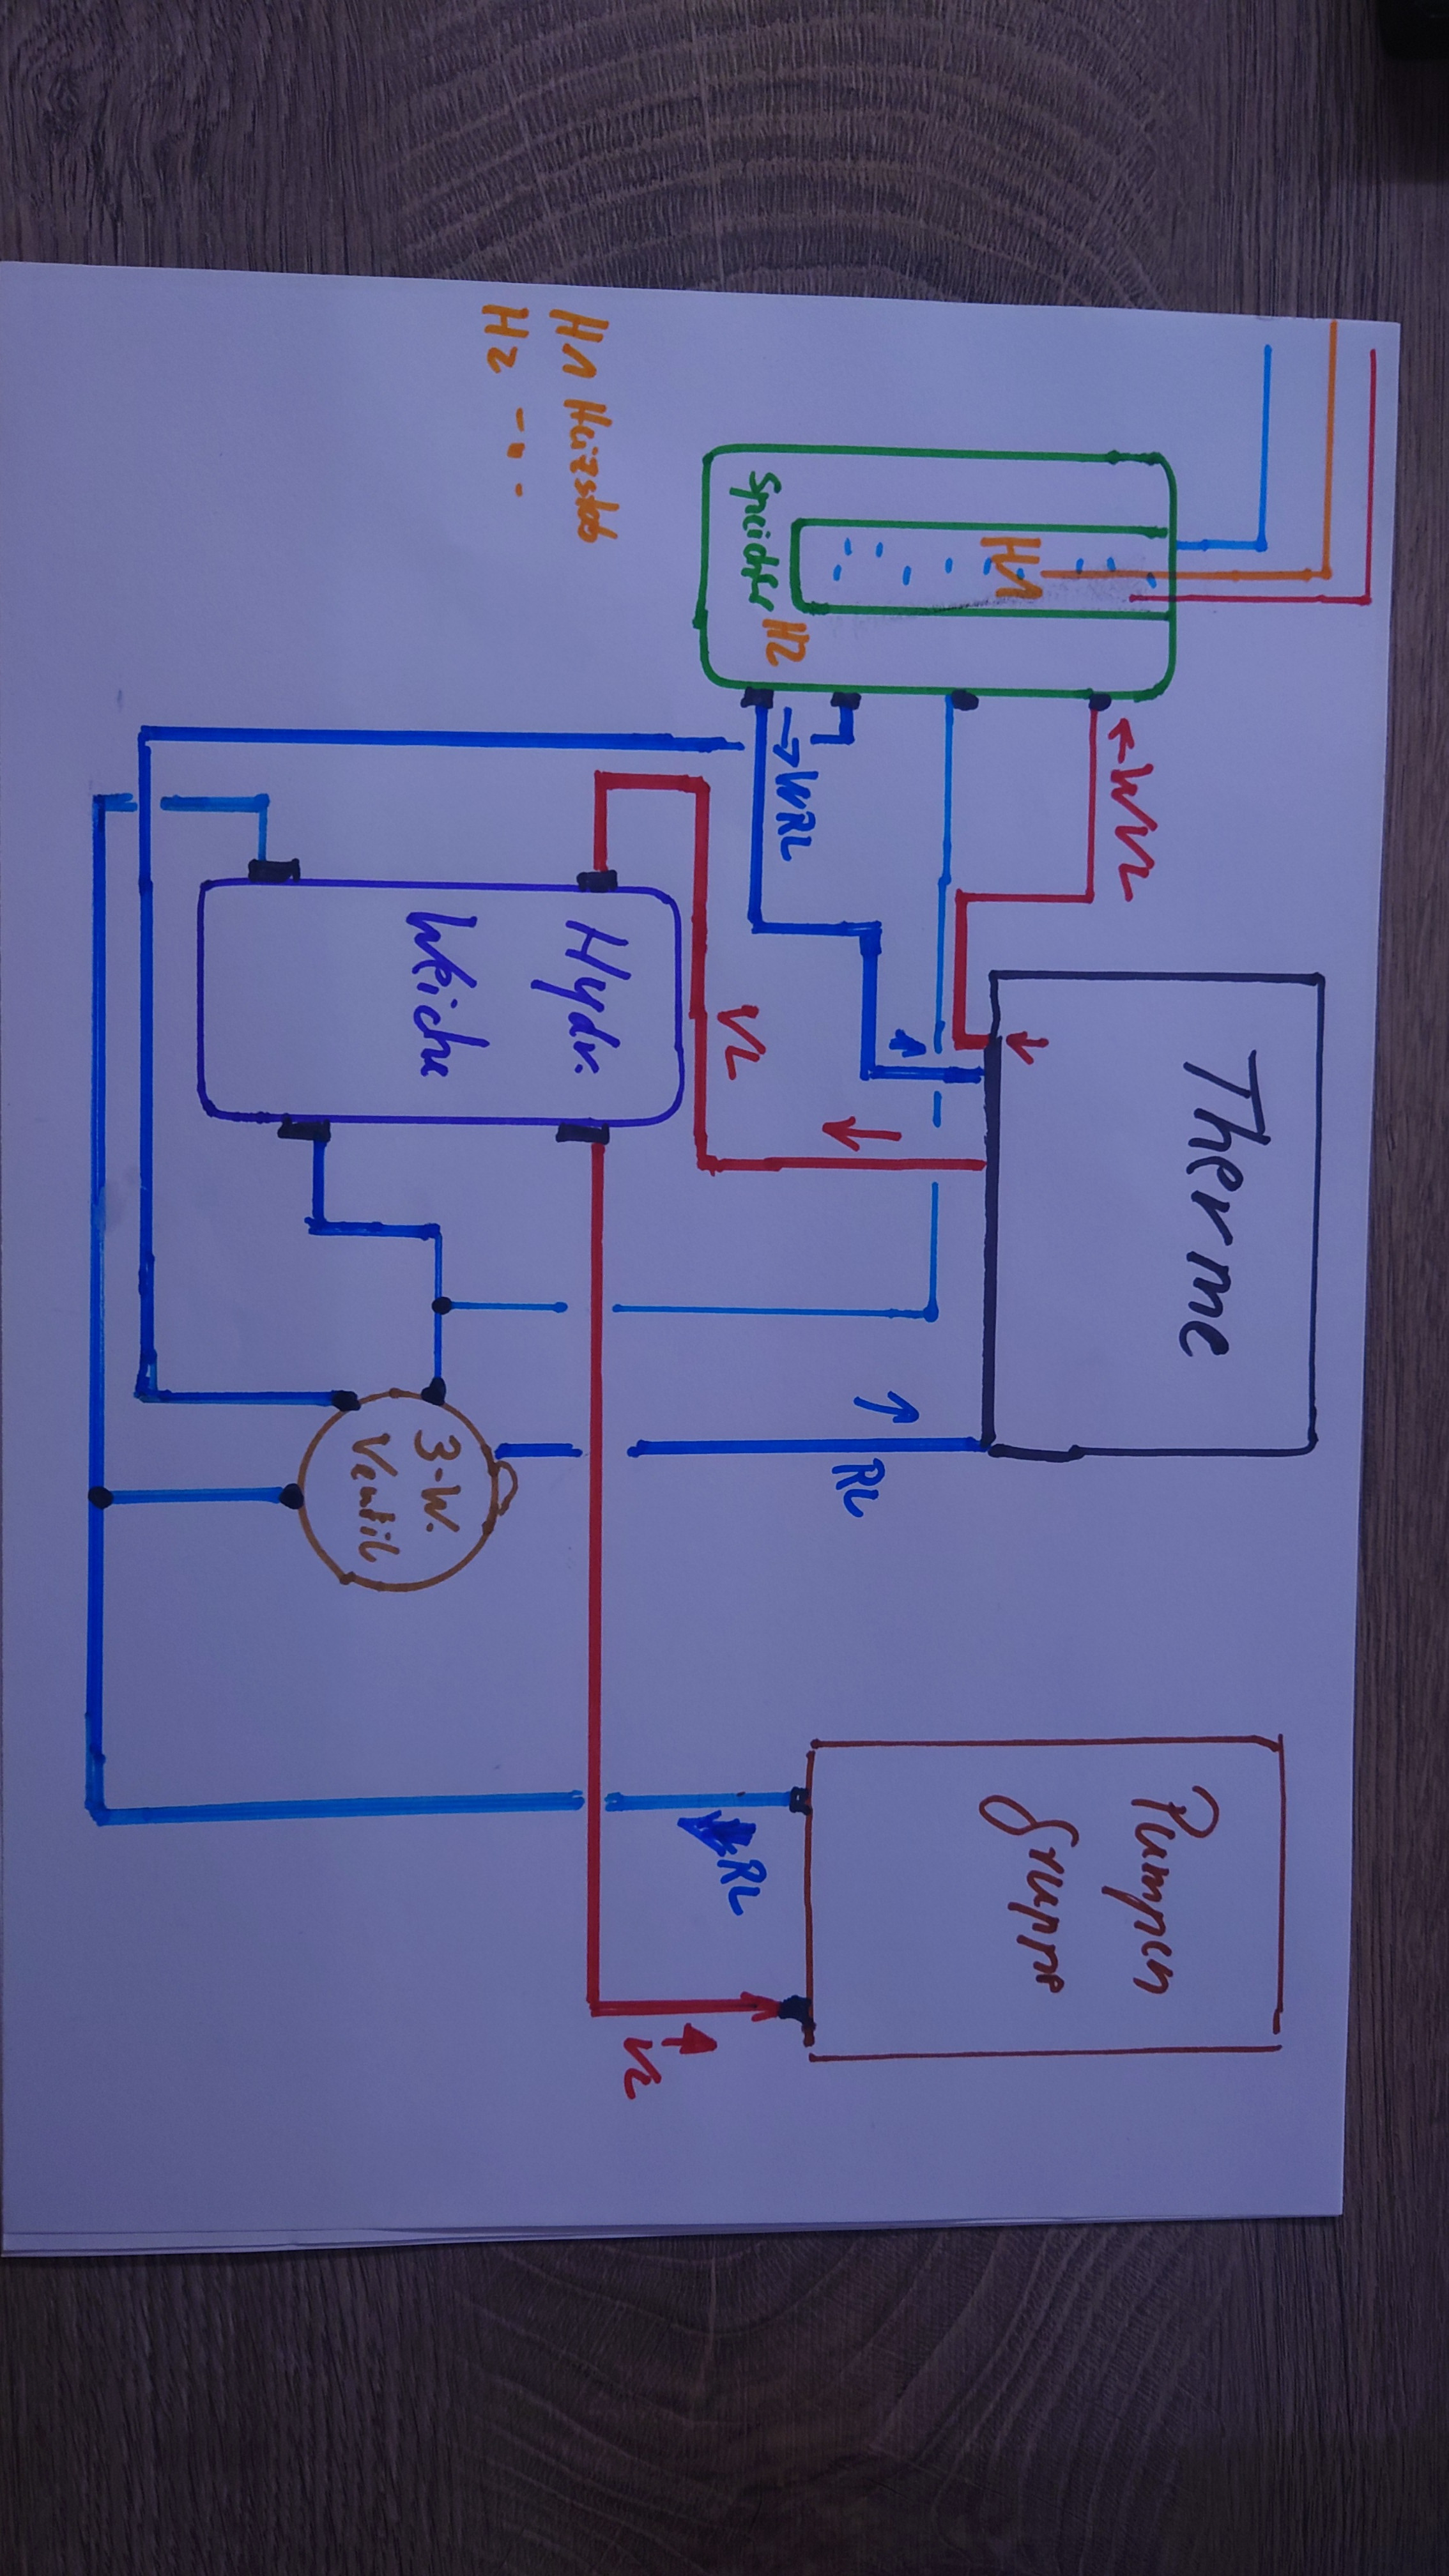 H1
Speicher
H2
H1 Heizstab
H2 - " -
WVL
WRL
Therme
VL
Hydr.
Weiche
RL
3-W.
Ventil
Pumpen
gruppe
RL
VL